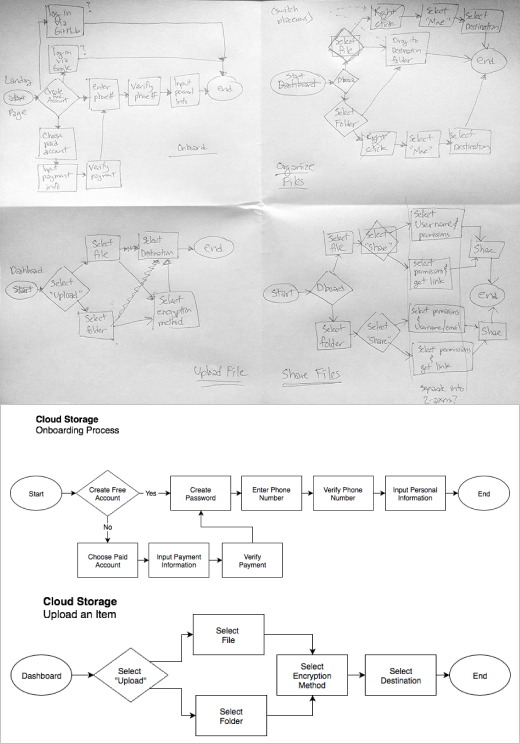 log-in
via
GitHub
?
log-in
via
Google
?
Landing
Start
Page
Create
Free
Account
Enter
phone#
Verify
phone#
Input
personal
Info
end
Choose
paid
account
Input
payment
info
Verify
payment
Onboard
(switch
Right
click
Select
"Move"
Select
Destination
Select
File
Drag to
Destination
folder
end
Start
Dashboard
Dboard
Select
Folder
Right
click
Select
"Move"
Select
Destination
Organize
Files
Dashboard
Start
Select
"Upload"
Select
file
Select
Destination
end
Select
folder
Select
encryption
method
Upload File
Start
Dboard
Select
file
Select
"Share"
Select
Username/
permissions
Select
permissions/
get link
Share
end
Select
folder
Select
"Share"
Select permissions
&
Username/email
Select permissions
&
get link
Share
Share Files
Separate into
2-axns?
Cloud Storage
Onboarding Process
Start
Create Free
Account
Yes
Create
Password
Enter Phone
Number
Verify Phone
Number
Input Personal
Information
End
No
Choose Paid
Account
Input Payment
Information
Verify
Payment
Cloud Storage
Upload an Item
Dashboard
Select
"Upload"
Select
File
Select
Folder
Select
Encryption
Method
Select
Destination
End